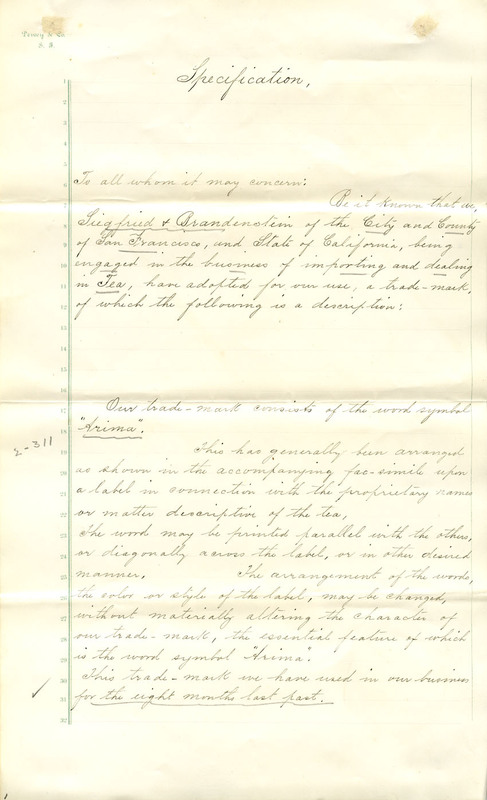 Specification,
1
2
3
4
5
6
To all whom it may concern:
7
Be it known that we,
8
Siegfried & Brandenstein of the City and County
9
of San Francisco, and State of California, being
10
engaged in the business of importing and dealing
11
in Tea, have adopted for our use, a trade-mark,
12
of which the following is a description:
13
14
15
16
17
Our trade-mark consists of the word symbol
18
"Arima".
2-311
19
This has generally been arranged
20
as shown in the accompanying fac-simile upon
21
a label in connection with the proprietary names
22
or matter descriptive of the tea,
23
The word may be printed parallel with the others,
24
or diagonally across the label, or in other desired
25
manner. The arrangement of the words,
26
the color or style of the label, may be changed,
27
without materially altering the character of
28
our trade-mark, the essential feature of which
29
is the word symbol "Arima".
30
This trade-mark we have used in our business
31
for the eight months last past.
32